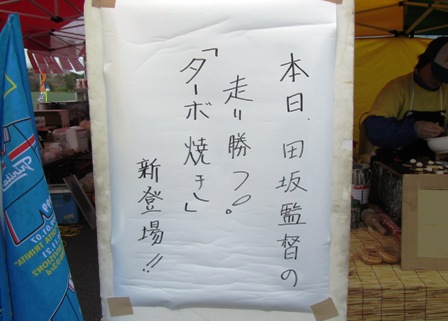 本日、田坂監督の
走り勝つ。
「ターボ焼き」
新登場!!